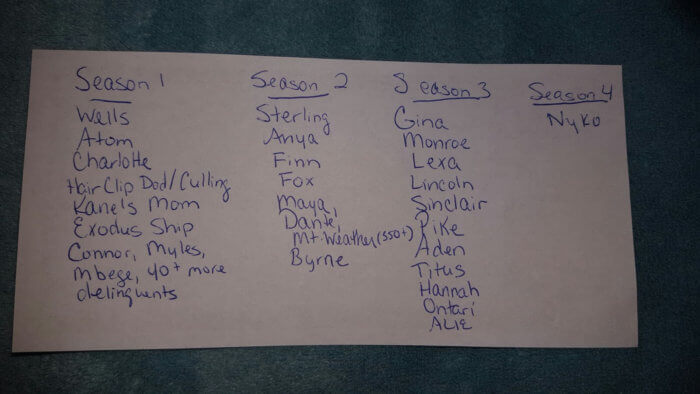 Season 1
Wells
Atom
Charlotte
Hair Clip Dad/Culling
Kane's Mom
Exodus Ship
Connor, Myles,
Mbege, 40+ more
delinquents
Season 2
Sterling
Anya
Finn
Fox
Maya,
Dante,
Mt. Weather (350+)
Byrne
Season 3
Gina
Monroe
Lexa
Lincoln
Sinclair
Pike
Aden
Titus
Hannah
Ontari
ALIE
Season 4
Nyko